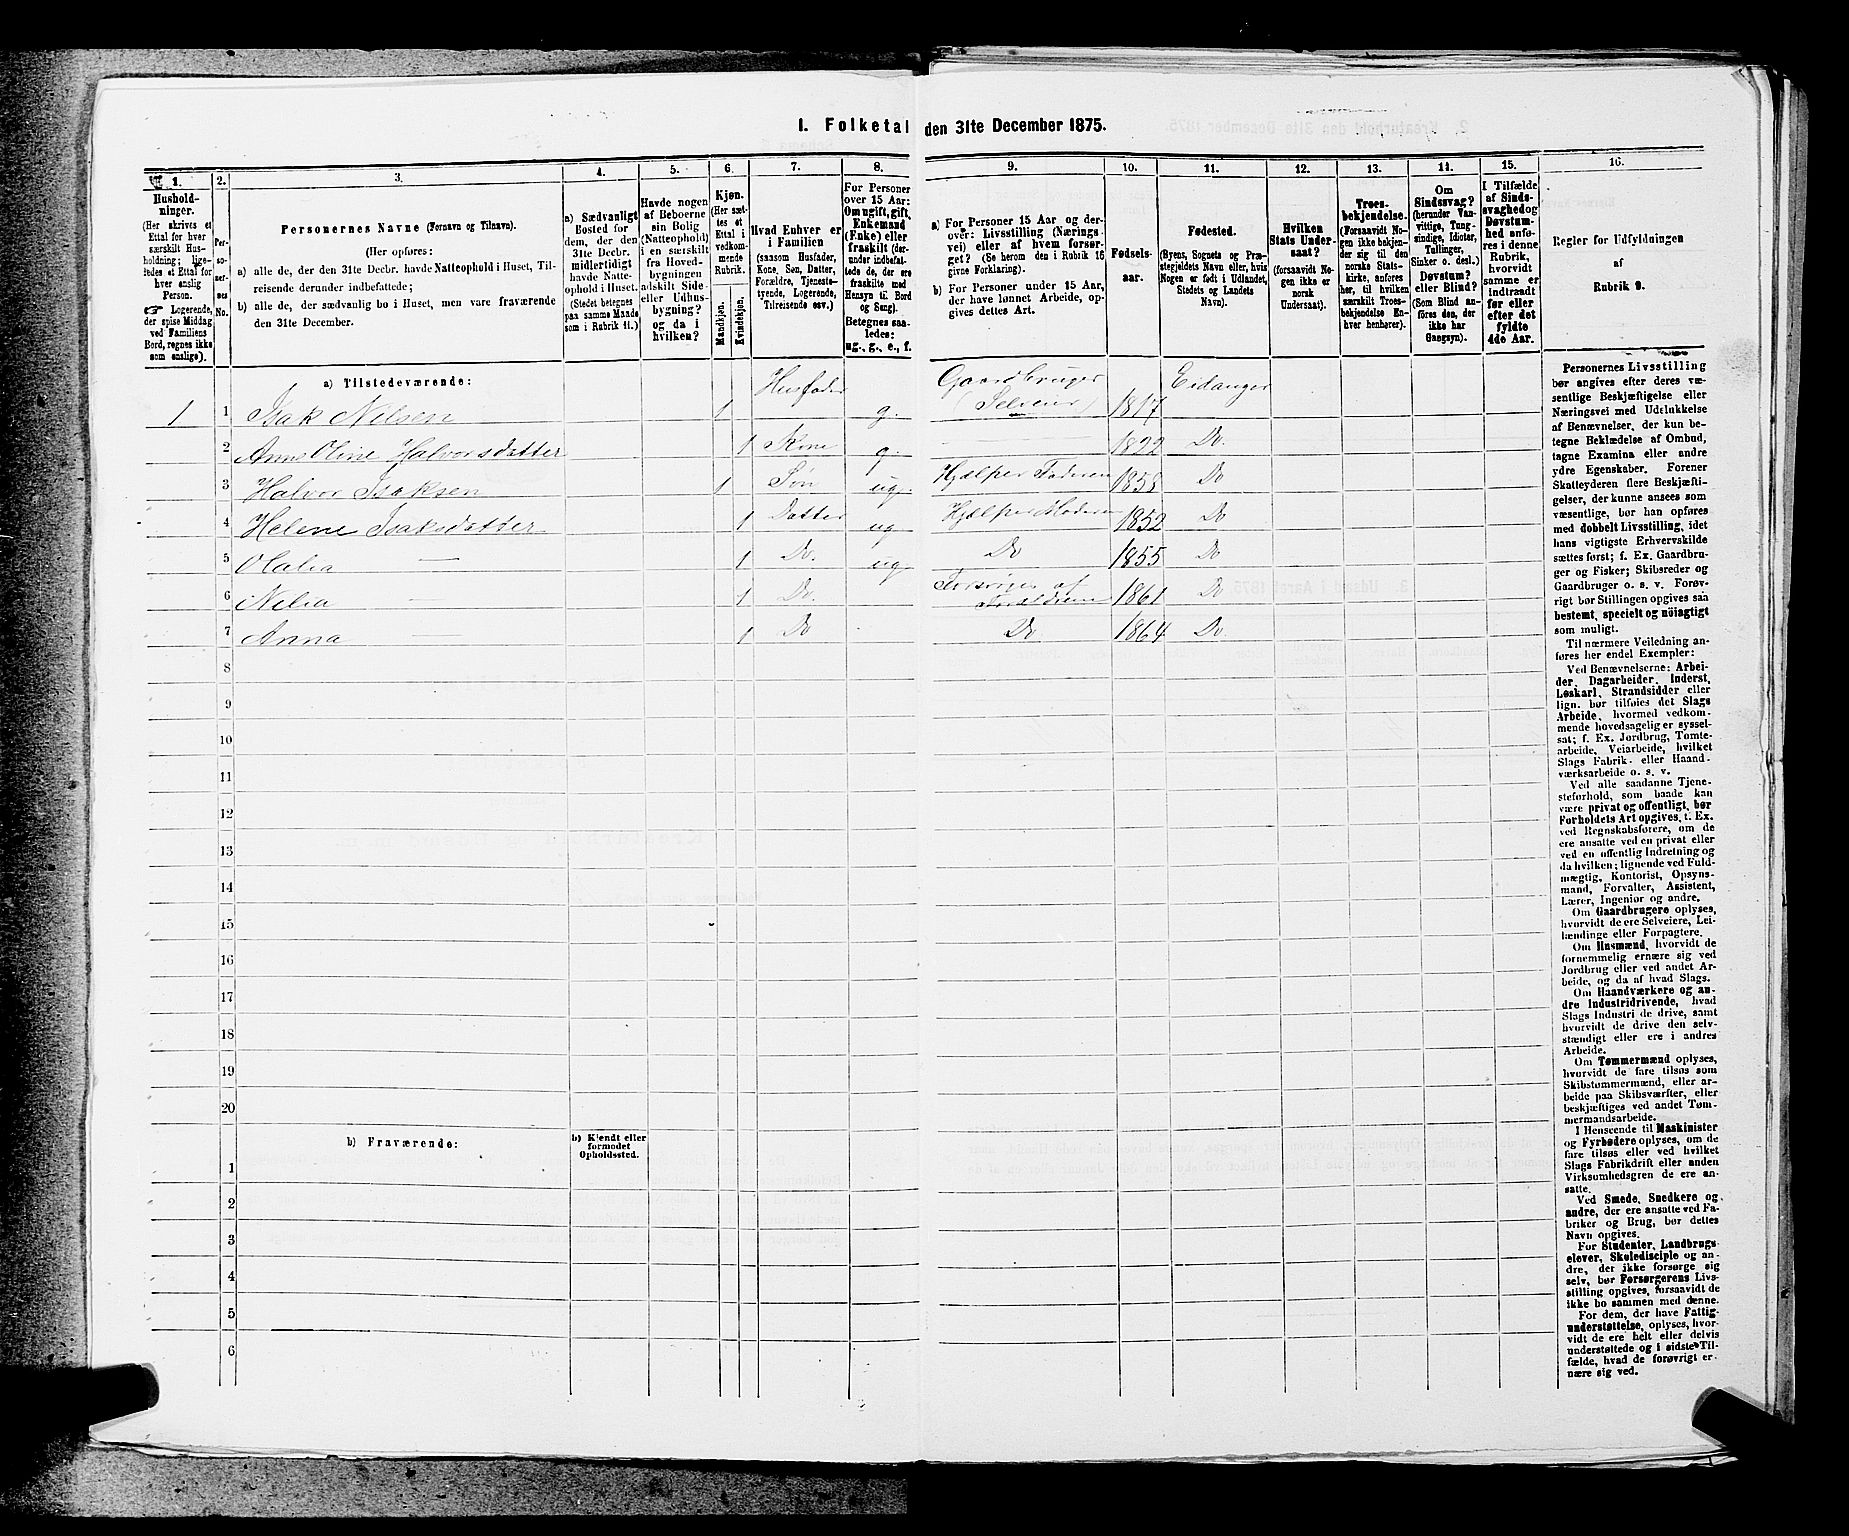 I. Folketal den 31te December 1875.
1.
Hushold-
ninger.
(Her skrives et
Ettal for hver
særskilt Hus-
holdning; lige-
ledes et Ettal for
hver enslig
Person.
☞ Logerende,
der spise Middag
ved Familiens
Bord, regnes ikke
som enslige).
2.
Per-
so-
ner-
nes
No.
3.
Personernes Navne (Fornavn og Tilnavn).
(Her opføres:
a) alle de, der den 31te Decbr. havde Natteophold i Huset, Til-
reisende derunder indbefattede;
b) alle de, der sædvanlig bo i Huset, men vare fraværende
den 31te December.
4.
a) Sædvanligt
Bosted for
dem, der den
31te Decbr.
midlertidigt
havde Natte-
ophold i Huset.
(Stedet betegnes
paa samme Maade
som i Rubrik 11.)
5.
Havde nogen
af Beboerne
sin Bolig
(Natteophold)
i en særskilt
fra Hoved-
bygningen
adskilt Side-
eller Udhus-
bygning?
og da i
hvilken?
6.
Kjøn.
(Her sæt-
tes et
Ettal i
vedkom-
mende
Rubrik.
Mandkjøn.
Kvindekjøn.
7.
Hvad Enhver er
i Familien
(saasom Husfader,
Kone, Søn, Datter,
Forældre, Tjeneste-
tyende, Logerende,
Tilreisende osv.)
8.
For Personer
over 15 Aar:
Om ugift, gift,
Enkemand
(Enke) eller
fraskilt (der-
under indbefat-
tede de, der ere
fraskilte med
Hensyn til Bord
og Seng).
Betegnes saa-
ledes:
ug., g., e., f.
9.
a) For Personer 15 Aar og der-
over: Livsstilling (Nærings-
vei) eller af hvem forsør-
get? (Se herom den i Rubrik 16
givne Forklaring).
b) For Personer under 15 Aar,
der have lønnet Arbeide, op-
gives dettes Art.
10.
Fødsels-
aar.
11.
Fødested.
(Byens, Sognets og Præ-
stegjeldets Navn eller, hvis
Nogen er født i Udlandet,
Stedets og Landets
Navn).
12.
Hvilken
Stats Under-
saat?
(forsaavidt No-
gen ikke er
norsk
Undersaat).
13.
Troes-
bekjendelse.
(Forsaavidt No-
gen ikke bekjen-
der sig til den
norske Stats-
kirke, anføres
her, til hvilken
særskilt Troes-
bekjendelse En-
hver henhører).
14.
Om
Sindssvag?
(herunder Van-
vittige, Tung-
sindige, Idioter,
Tullinger,
Sinker o. desl.)
Døvstum?
eller Blind?
(Som Blind an-
føres den, der
ikke har
Gangsyn).
15.
I Tilfælde
af Sinds-
svaghed og
Døvstum-
hed anfø-
res i denne
Rubrik,
hvorvidt
samme er
indtraadt
før eller
efter det
fyldte
4de Aar.
16.
Regler for Udfyldningen
af
Rubrik 9.
a) Tilstedeværende:
1 1 Isak Nilsen 1 Husfader g. Gaardbruger (Selveier) 1817 Eidanger
2 Anne Oline Halvorsdatter 1 Kone g. — 1822 Do.
3 Halvor Isaksen 1 Søn ug. Hjælper Faderen 1858 Do
4 Helene Isaksdatter 1 Datter ug Hjælper Moderen 1852 Do
5 Olalia — 1 Do. ug. Do 1855 Do
6 Nelia — 1 Do. Forsørges af Forældrene 1861 Do
7 Anna — 1 Do Do 1864 Do
8
9
10
11
12
13
14
15
16
17
18
19
20
b) Fraværende:
b) Kjendt eller
formodet
Opholdssted.
1
2
3
4
5
6
Personernes Livsstilling
bør angives efter deres væ-
sentlige Beskjæftigelse eller
Næringsvei med Udelukkelse
af Benævnelser, der kun be-
tegne Beklædelse af Ombud,
tagne Examina eller andre
ydre Egenskaber. Forener
Skatteyderen flere Beskjæfti-
gelser, der kunne ansees som
væsentlige, bør han opføres
med dobbelt Livsstilling, idet
hans vigtigste Erhvervskilde
sættes først; f. Ex. Gaardbru-
ger og Fisker; Skibsreder og
Gaardbruger o. s. v. Forøv-
rigt bør Stillingen opgives saa
bestemt, specielt og nöiagtigt
som muligt.
Til nærmere Veiledning an-
føres her endel Exempler:
Ved Benævnelserne: Arbei-
der, Dagarbeider, Inderst,
Løskarl, Strandsidder eller
lign. bør tilføies det Slags
Arbeide, hvormed vedkom-
mende hovedsagelig er syssel-
sat; f. Ex. Jordbrug, Tomte-
arbeide, Veiarbeide, hvilket
Slags Fabrik- eller Haand-
værksarbeide o. s. v.
Ved alle saadanne Tjene-
steforhold, som baade kan
være privat og offentligt, bør
Forholdets Art opgives, t. Ex.
ved Regnskabsførere, om de
ere ansatte ved en privat eller
ved en offentlig Indretning og
da hvilken; lignende ved Fuld-
mægtig, Kontorist, Opsyns-
mand, Forvalter, Assistent,
Lærer, Ingeniør og andre.
Om Gaardbrugere oplyses,
hvorvidt de ere Selveiere, Lei-
lændinge eller Forpagtere.
Om Husmænd, hvorvidt de
fornemmelig ernære sig ved
Jordbrug eller ved andet Ar-
beide, og da af hvad Slags.
Om Haandværkere og an-
dre Industridrivende, hvad
Slags Industri de drive, samt
hvorvidt de drive den selv-
stændigt eller ere i andres
Arbeide.
Om Tømmermænd oplyses,
hvorvidt de fare tilsøs som
Skibstømmermænd, eller ar-
beide paa Skibsværfter, eller
beskjæftiges ved andet Tøm-
mermandsarbeide.
I Henseende til Maskinister
og Fyrbødere oplyses, om de
fare tilsøs eller ved hvilket
Slags Fabrikdrift eller anden
Virksomhedsgren de ere an-
satte.
Ved Smede, Snedkere og
andre, der ere ansatte ved Fa-
briker og Brug, bør dettes
Navn opgives.
For Studenter, Landbrugs-
elever, Skoledisciple og an-
dre, der ikke forsørge sig
selv, bør Forsørgerens Livs-
stilling opgives, forsaavidt de
ikke bo sammen med denne.
For dem, der have Fattig-
understøttelse, oplyses, hvor-
vidt de ere helt eller delvis
understøttede og i sidste Til-
fælde, hvad de forøvrigt er-
nære sig ved.